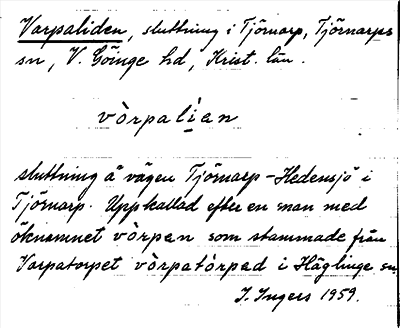 Varpaliden, sluttning i Tjörnarp, Tjörnarps
sn, V. Göinge hd, Krist. län.
vòrpalían
sluttning å vägen Tjörnarp-Hedensjö i
Tjörnarp. Uppkallad efter en man med
öknamnet vòrpen som stammade från
Varpatorpet vòrpatórpad i Häglinge sn.
I. Ingers 1959.